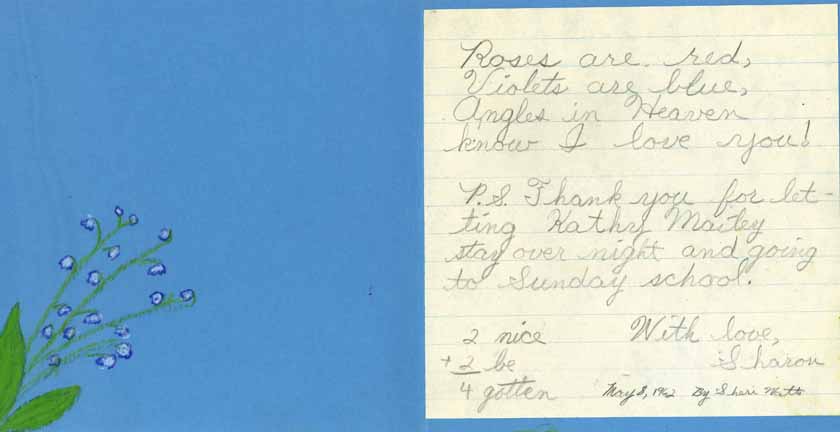 Roses are red,
Violets are blue,
Angles in Heaven
know I love you!
P.S. Thank you for let-
ting Kathy
stay over night and going
to Sunday school.
2 nice
+ 2 be
4 gotten
With love,
Sharon
May 8, 1962 By Sheri